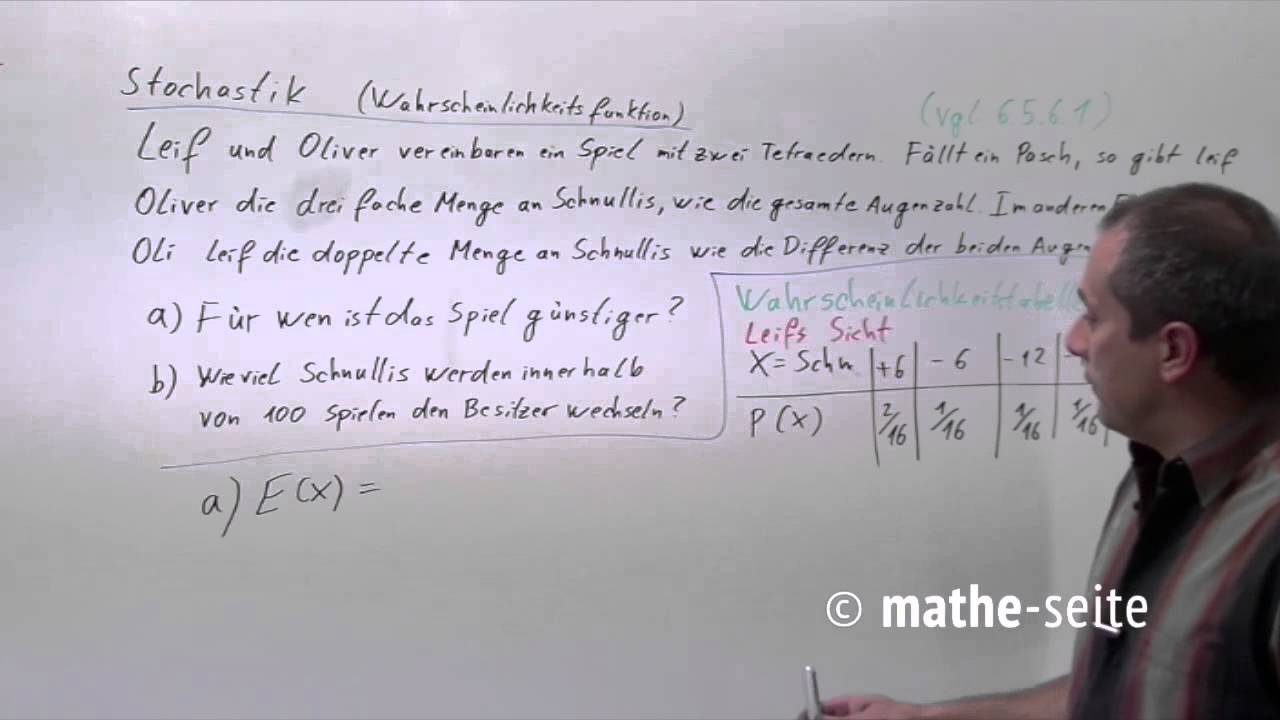 Stochastik (Wahrscheinlichkeitsfunktion)
(vgl 65.6.1)
Leif und Oliver vereinbaren ein Spiel mit zwei Tetraedern. Fällt ein Pasch, so gibt leif
Oliver die dreifache Menge an Schnullis, wie die gesamte Augenzahl. Im anderen
Oli leif die doppelte Menge an Schnullis wie die Differenz der beiden Augen
a) Für wen ist das Spiel günstiger?
b) Wieviel Schnullis werden innerhalb
von 100 Spielen den Besitzer wechseln?
Wahrscheinlichkeitstabelle
Leifs Sicht
X=Schn +6 -6 -12 -
P(X) 2/16 1/16 1/16 1/16
a) E(X) =
© mathe-seite